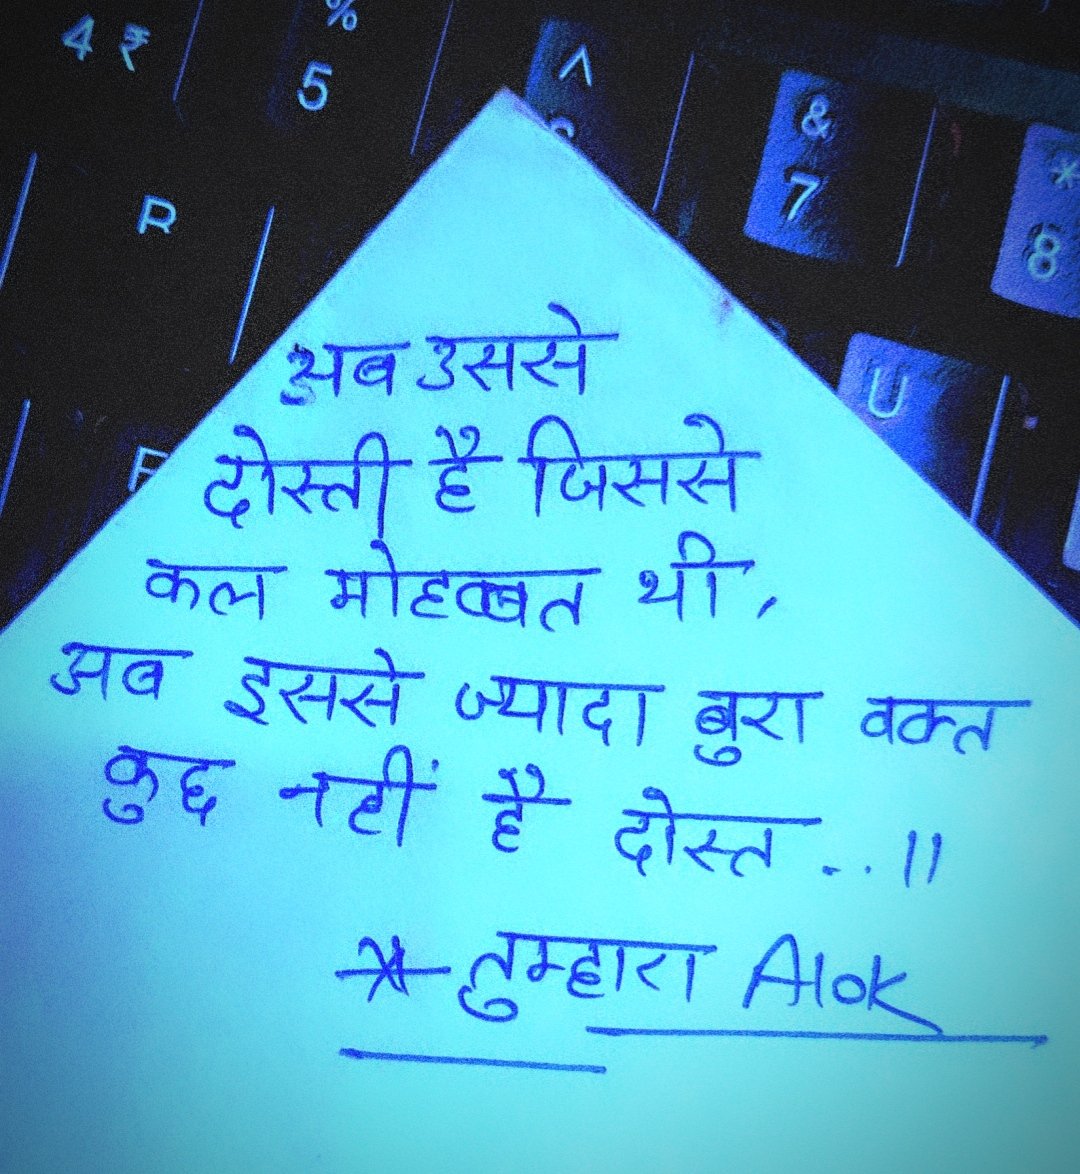 4 ₹
%
5
^
&
7
*
8
R
U
F
अब उससे
दोस्ती है जिससे
कल मोहब्बत थी,
अब इससे ज्यादा बुरा वक्त
कुछ नहीं है दोस्त . . ॥
तुम्हारा Alok